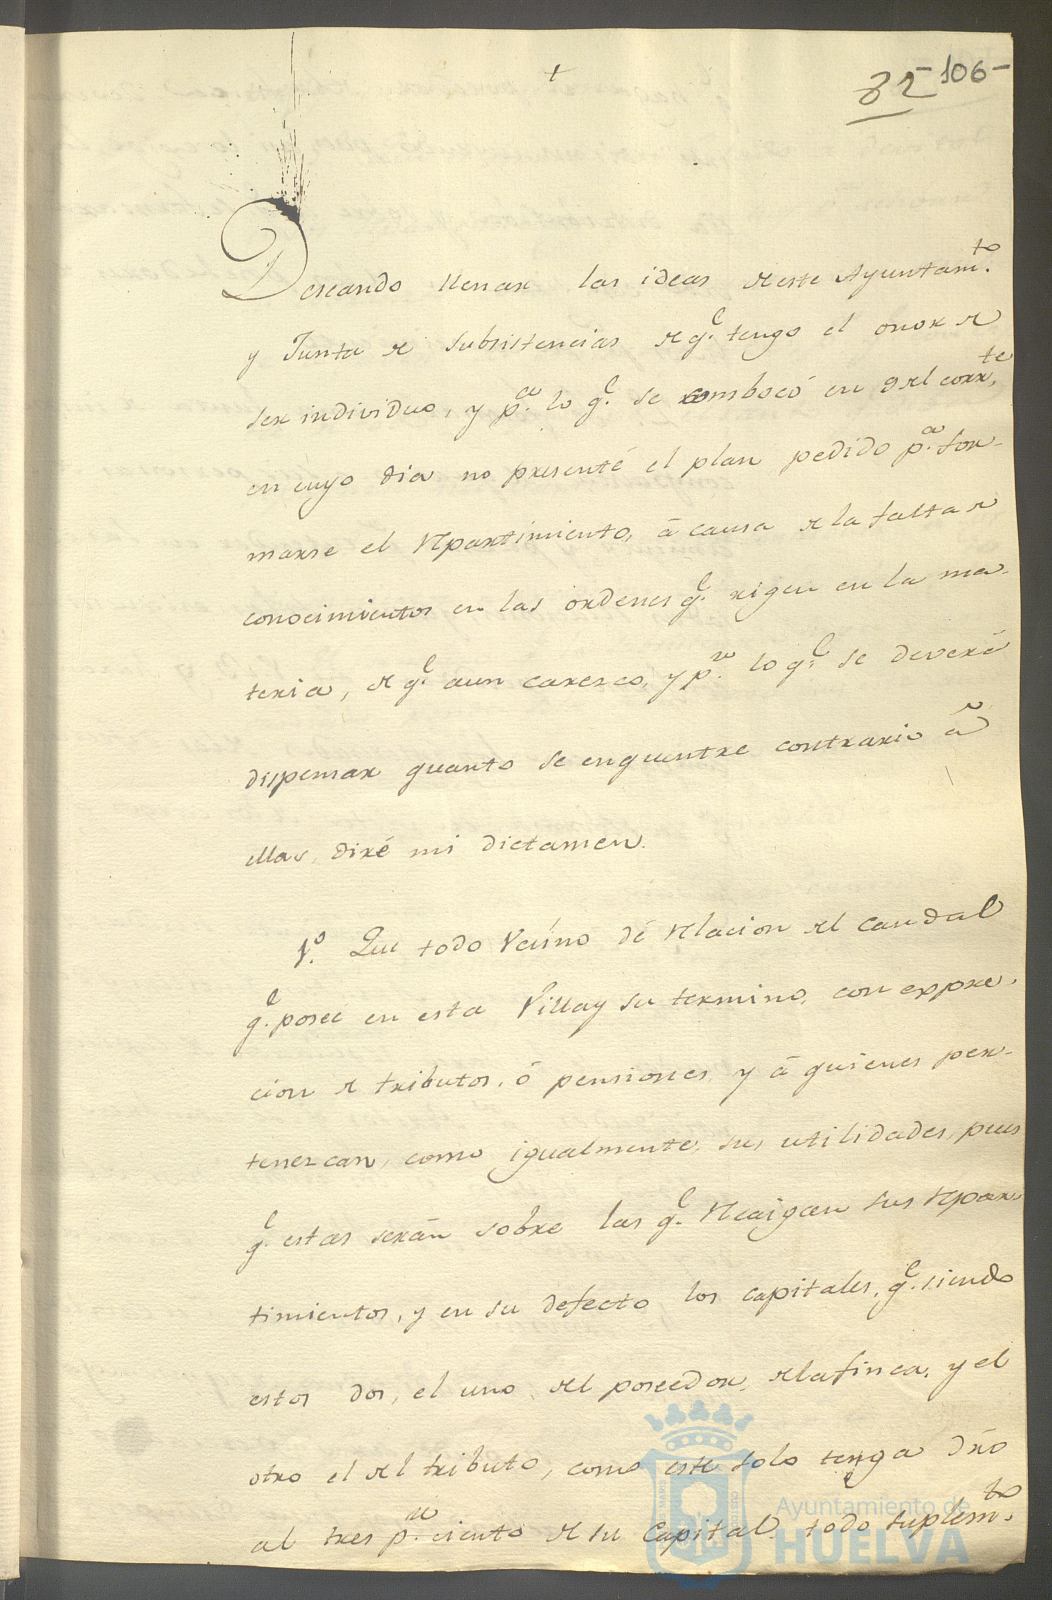 +
82 -106-
Deseando llenar las ideas de este Ayuntam.to
y Junta de Subsistencias de q.e tengo el onor de
ser individuo, y p.a lo q.e se combocó en 9 del corr.te
en cuyo dia no presenté el plan pedido p.a for-
marse el repartimiento, á causa de la falta de
conocimientos en las ordenes q.e rigen en la ma-
teria, de q.e aun caresco, y p.r lo q.e se deveré
dispensar quanto se enquentre contrario á
ellas, diré mi dictamen.
1.o Que todo Vecino dé relacion del caudal
q.e posee en esta Villa y su termino, con expre-
cion de tributos, ó pensiones y á quienes per-
tenezcan, como igualmente, sus utilidades, pues
q.e estas serán sobre las q.e recaigan sus repar-
timientos, y en su defecto los capitales, q.e siendo
estos dos, el uno del poseedor de la finca, y el
otro el del tributo, como este solo tenga dro
al tres p.r ciento de su Capital todo suplem.to
Ayuntamiento de
HUELVA